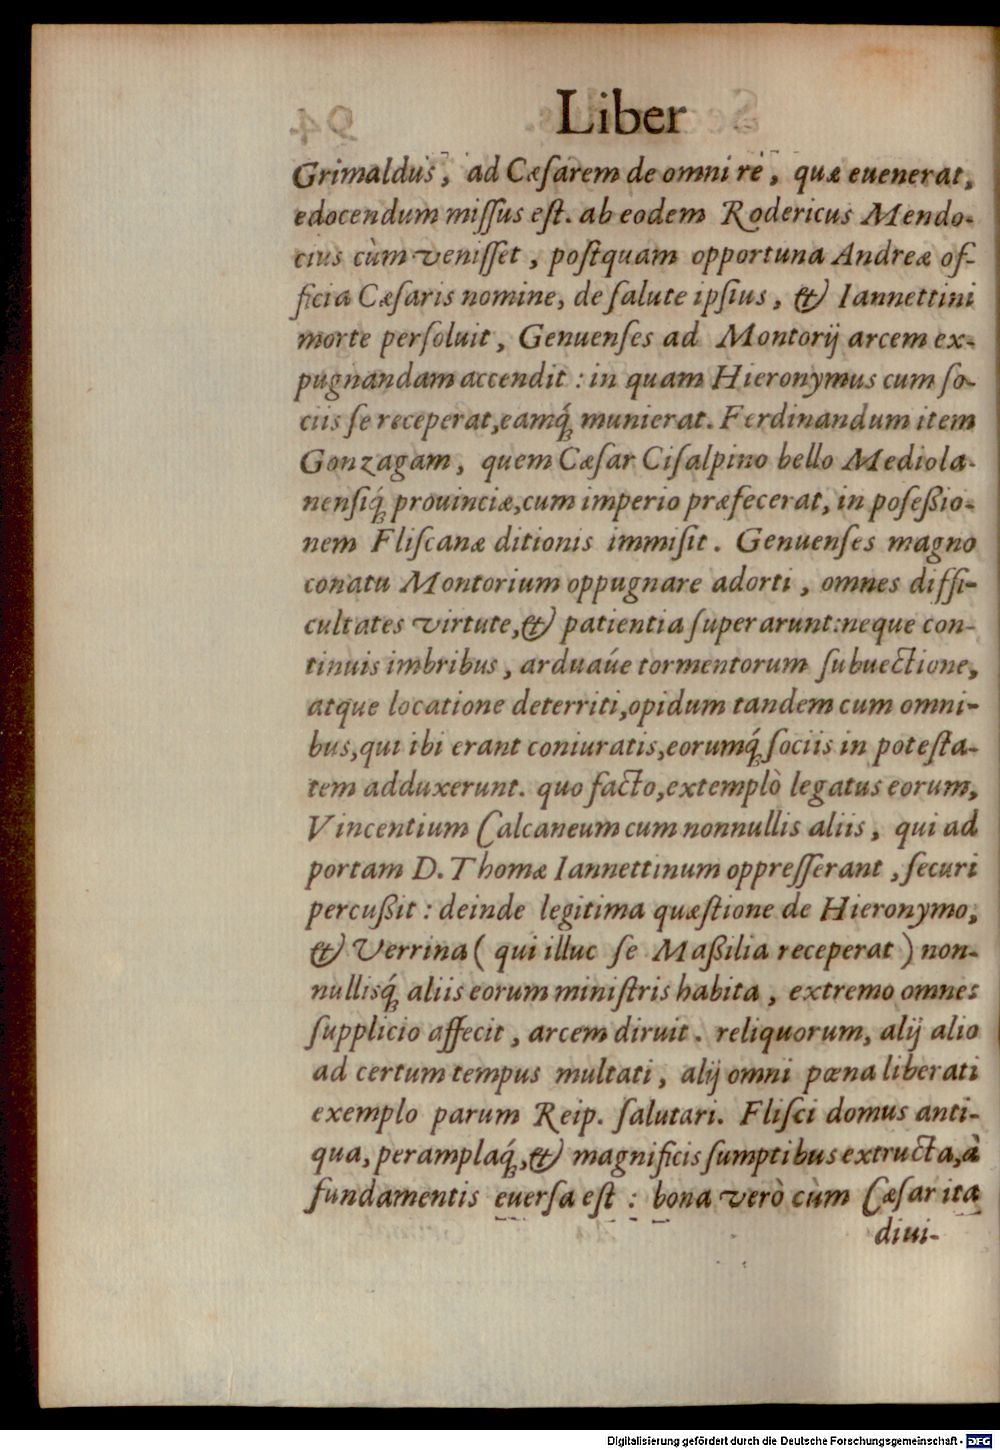 Liber
Grimaldus, ad Cæſarem de omni re, quæ euenerat,
edocendum miſſus eſt. ab eodem Rodericus Mendo-
cius cùm veniſſet, poſtquam opportuna Andreæ of-
ficia Cæſaris nomine, de ſalute ipſius, & Iannettini
morte perſoluit, Genuenſes ad Montorij arcem ex-
pugnandam accendit: in quam Hieronymus cum ſo-
ciis ſe receperat, eamq́; munierat. Ferdinandum item
Gonzagam, quem Cæſar Ciſalpino bello Mediola-
nenſiq́; prouinciæ, cum imperio præfecerat, in poſeßio-
nem Fliſcanæ ditionis immiſit. Genuenſes magno
conatu Montorium oppugnare adorti, omnes diffi-
cultates virtute, & patientia ſuperarunt: neque con-
tinuis imbribus, arduaúe tormentorum ſubuectione,
atque locatione deterriti, opidum tandem cum omni-
bus, qui ibi erant coniuratis, eorumq́; ſociis in poteſta-
tem adduxerunt. quo facto, extemplò legatus eorum,
Vincentium Calcaneum cum nonnullis aliis, qui ad
portam D. Thomæ Iannettinum oppreſſerant, ſecuri
percußit: deinde legitima quæſtione de Hieronymo,
& Verrina (qui illuc ſe Maßilia receperat) non-
nullisq́; aliis eorum miniſtris habita, extremo omnes
ſupplicio affecit, arcem diruit. reliquorum, alij alio
ad certum tempus multati, alij omni pœna liberati
exemplo parum Reip. ſalutari. Fliſci domus anti-
qua, peramplaq́;, & magnificis ſumptibus extructa, à
fundamentis euerſa eſt: bona verò cùm Cæſar ita
diui-
Digitalisierung gefördert durch die Deutsche Forschungsgemeinschaft - DFG